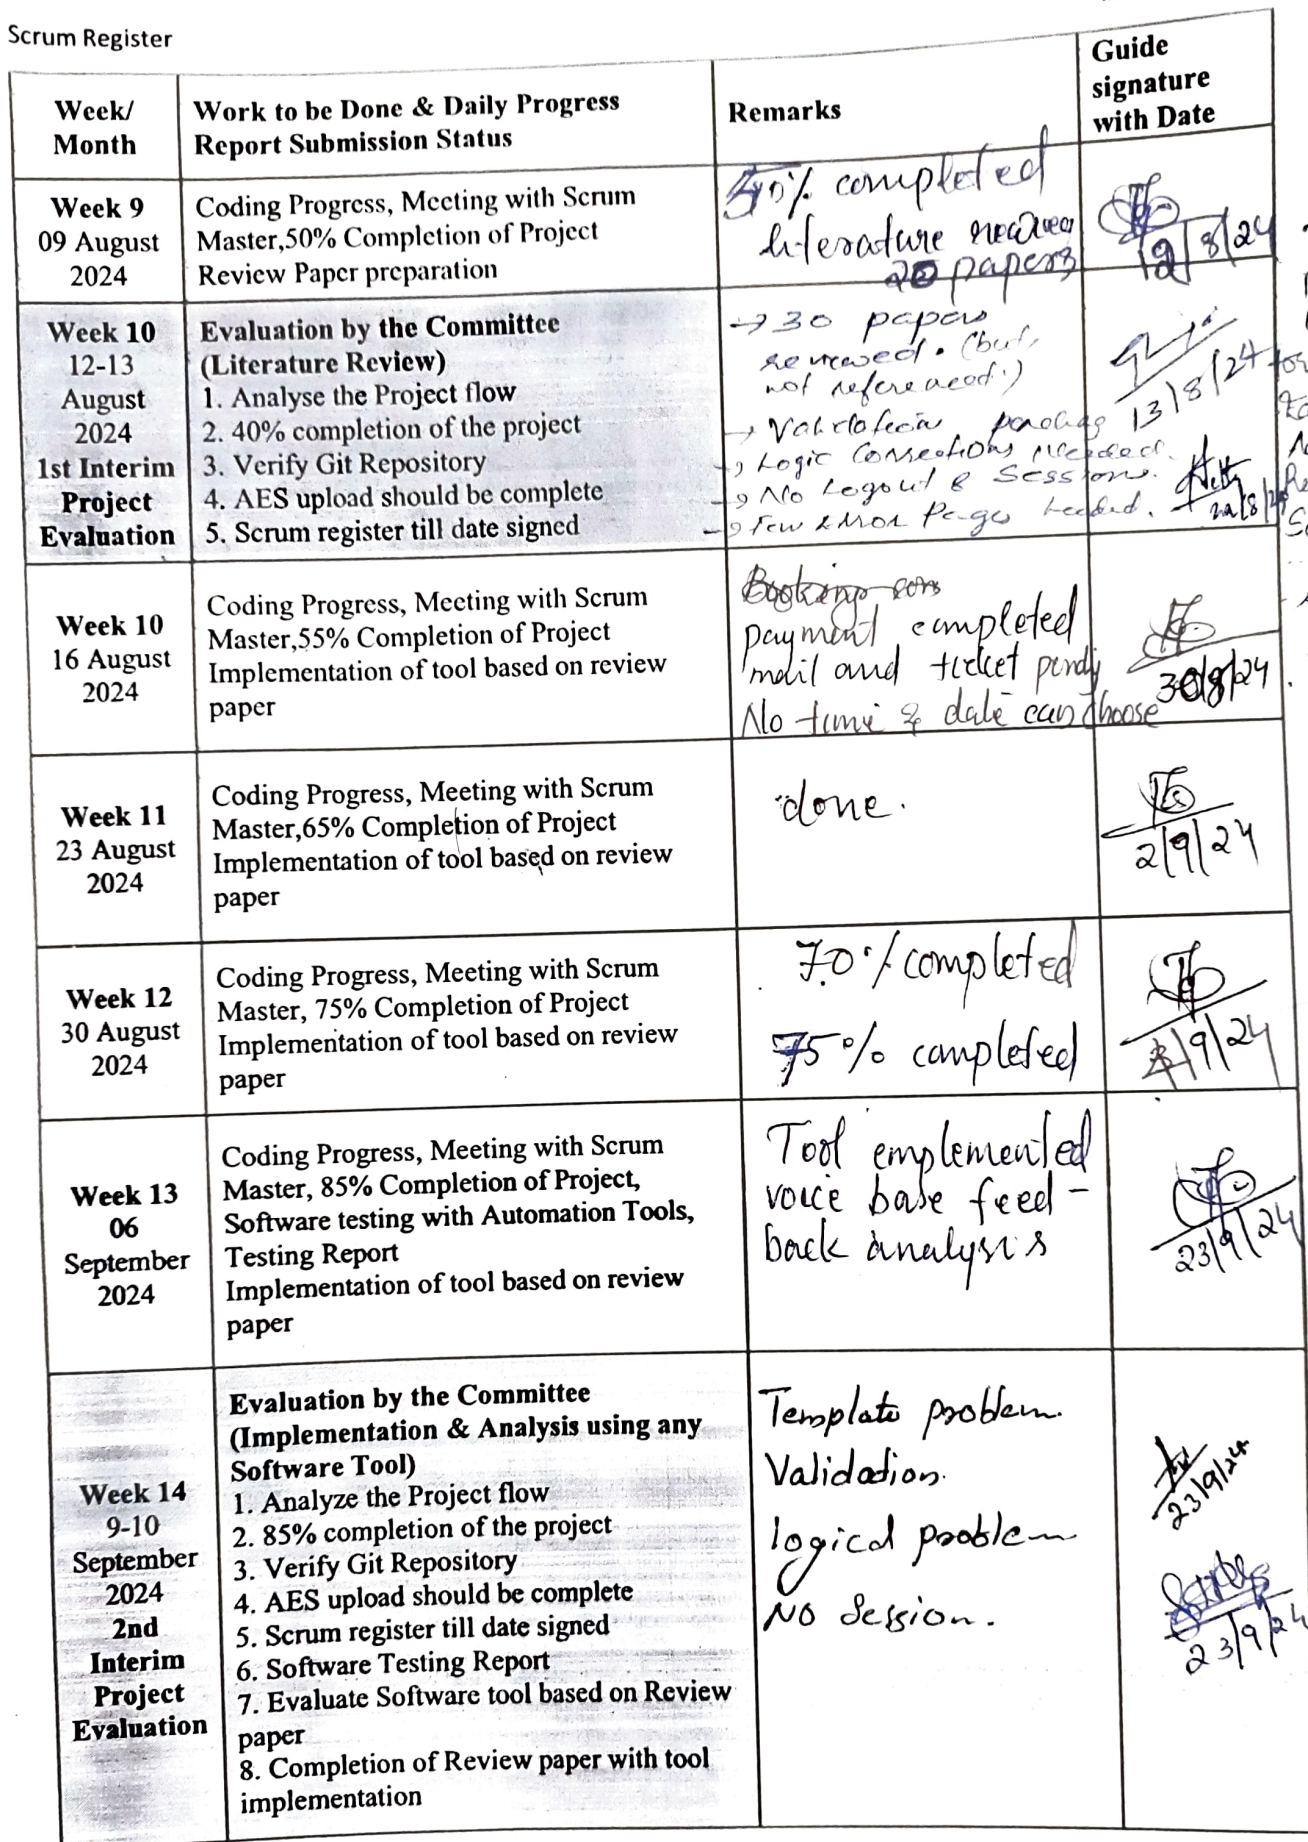 Scrum Register
Week/
Month
Work to be Done & Daily Progress
Report Submission Status
Remarks
Guide
signature
with Date
Week 9
09 August
2024
Coding Progress, Meeting with Scrum
Master,50% Completion of Project
Review Paper preparation
completed
literature
20 papers
8/24
Week 10
12-13
August
2024
1st Interim
Project
Evaluation
Evaluation by the Committee
(Literature Review)
1. Analyse the Project flow
2. 40% completion of the project
3. Verify Git Repository
4. AES upload should be complete
5. Scrum register till date signed
→ 30 papers
reviewed. (but,
not referenced.)
→ Validation
→ Logic Corrections needed.
→ No Logout & Sessions.
→ Few Error Pages needed.
13/8/24
Week 10
16 August
2024
Coding Progress, Meeting with Scrum
Master,55% Completion of Project
Implementation of tool based on review
paper
payment completed
mail and ticket
No time & date can choose
30/8/24
Week 11
23 August
2024
Coding Progress, Meeting with Scrum
Master,65% Completion of Project
Implementation of tool based on review
paper
done.
2/9/24
Week 12
30 August
2024
Coding Progress, Meeting with Scrum
Master, 75% Completion of Project
Implementation of tool based on review
paper
70% completed
75% completed
/9/24
Week 13
06
September
2024
Coding Progress, Meeting with Scrum
Master, 85% Completion of Project,
Software testing with Automation Tools,
Testing Report
Implementation of tool based on review
paper
Tool emplemented
voice base feed-
back analysis
23/9/24
Week 14
9-10
September
2024
2nd
Interim
Project
Evaluation
Evaluation by the Committee
(Implementation & Analysis using any
Software Tool)
1. Analyze the Project flow
2. 85% completion of the project
3. Verify Git Repository
4. AES upload should be complete
5. Scrum register till date signed
6. Software Testing Report
7. Evaluate Software tool based on Review
paper
8. Completion of Review paper with tool
implementation
Template problem.
Validation.
logical problem
NO Session.
23/9/24
23/9/24